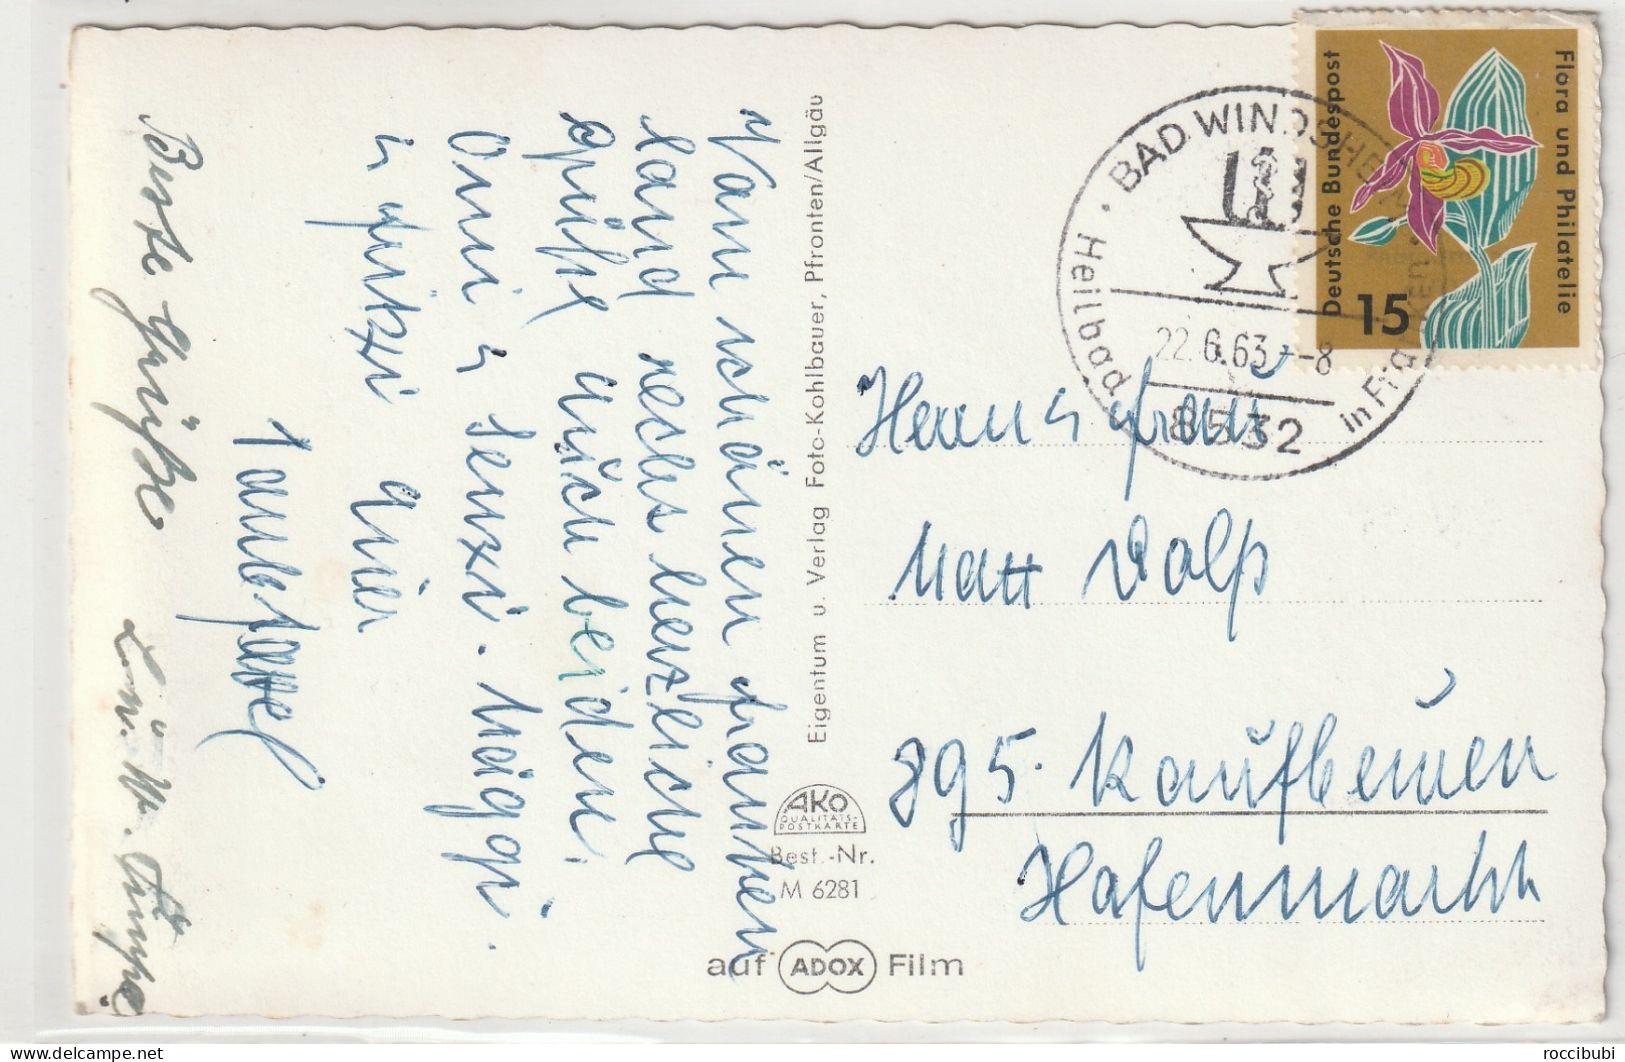 Vom schönen Franken
land recht herzliche
Grüße auch beiden
Omi u Senzi. Maggi
u Fritzi
Beste Grüße
Eigentum u. Verlag Foto-Kohlbauer, Pfronten/Allgäu
AKO
QUALITÄTS-
POSTKARTE
Best.-Nr.
M 6281
auf ADOX Film
Deutsche Bundespost
Flora und Philatelie
15
BAD WINDSHEIM
Heilbad in Franken
22.6.63.-8
8532
Herrn u Frau
895 Kaufbeuren
Hafenmarkt
delcampe.net
roccibubi